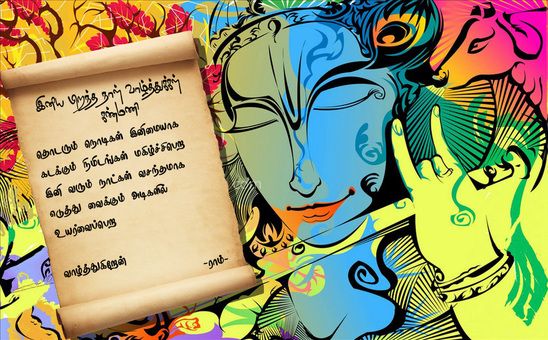 இனிய பிறந்த நாள் வாழ்த்துக்கள்
கண்மணி
தொடரும் நொடிகள் இனிமையாக
கடக்கும் நிமிடங்கள் மகிழ்ச்சிபெற
இனி வரும் நாட்கள் வசந்தமாக
எடுத்து வைக்கும் அடிகளில்
உயர்வைப்பெற
வாழ்த்துகிறேன் -ராம்-